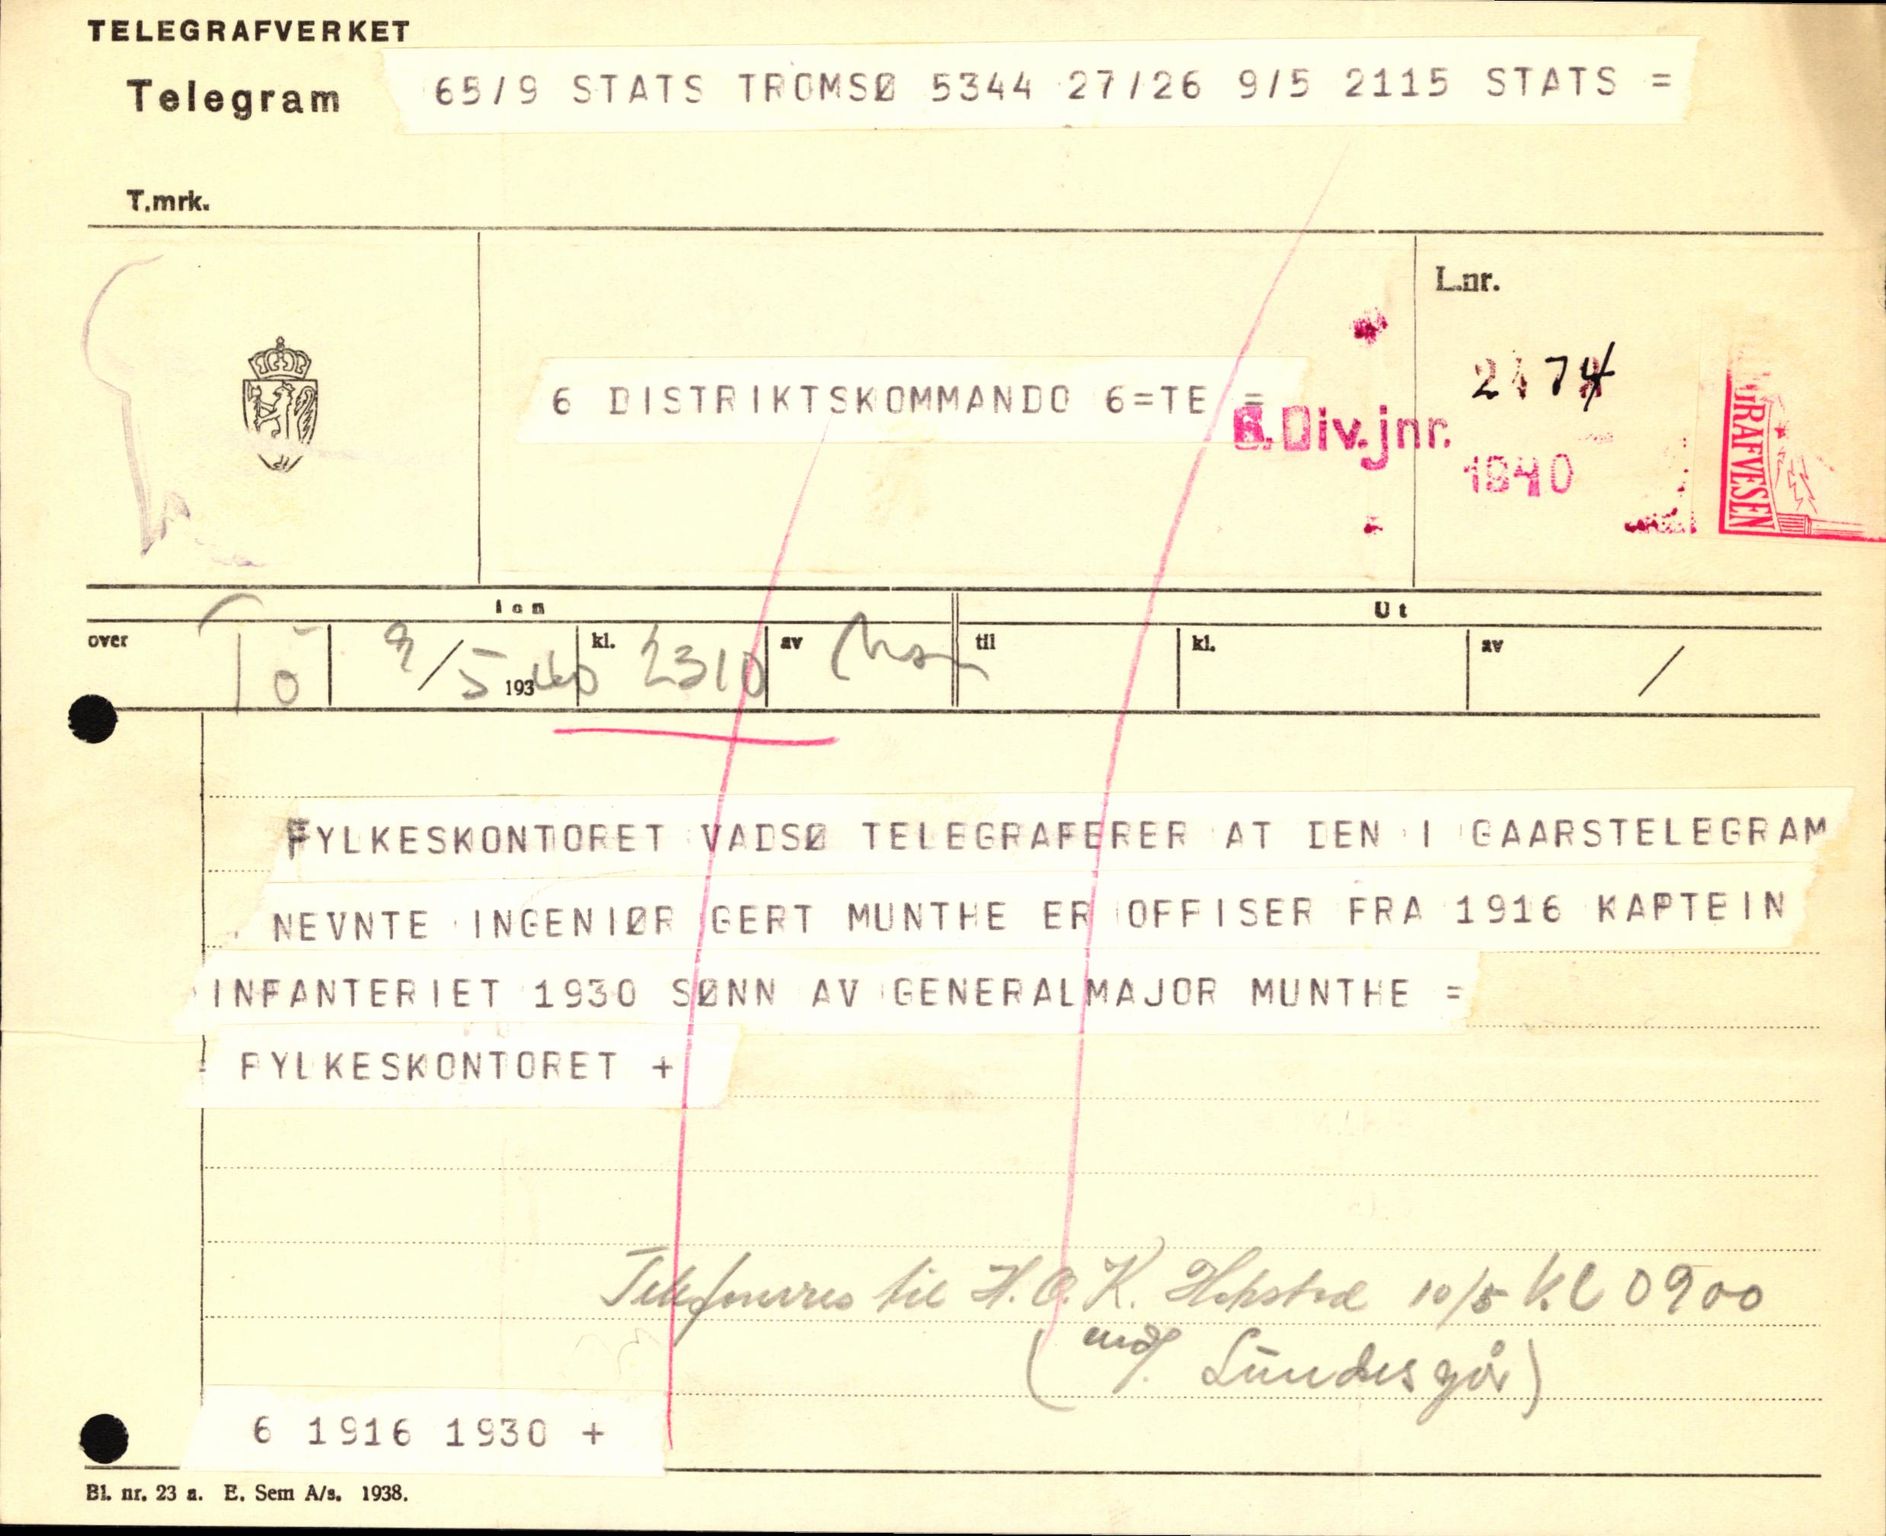 TELEGRAFVERKET
Telegram
65/9 STATS TROMSØ 5344 27/26 9/5 2115 STATS =
T.mrk.
L.nr.
2474
6 DISTRIKTSKOMMANDO 6=TE =
6. Div. jnr.
1940
GRAFVESEN
Inn
Ut
over Tö 9/5 1940 kl. 2310 av til kl. av /
FYLKESKONTORET VADSØ TELEGRAFERER AT DEN I GAARSTELEGRAM
NEVNTE INGENIØR GERT MUNTHE ER OFFISER FRA 1916 KAPTEIN
INFANTERIET 1930 SØNN AV GENERALMAJOR MUNTHE =
FYLKESKONTORET +
Telefoneres til H.O.K. 10/5 Kl 0900
( Lundesgår)
6 1916 1930 +
Bl. nr. 23 a. E. Sem A/s. 1938.